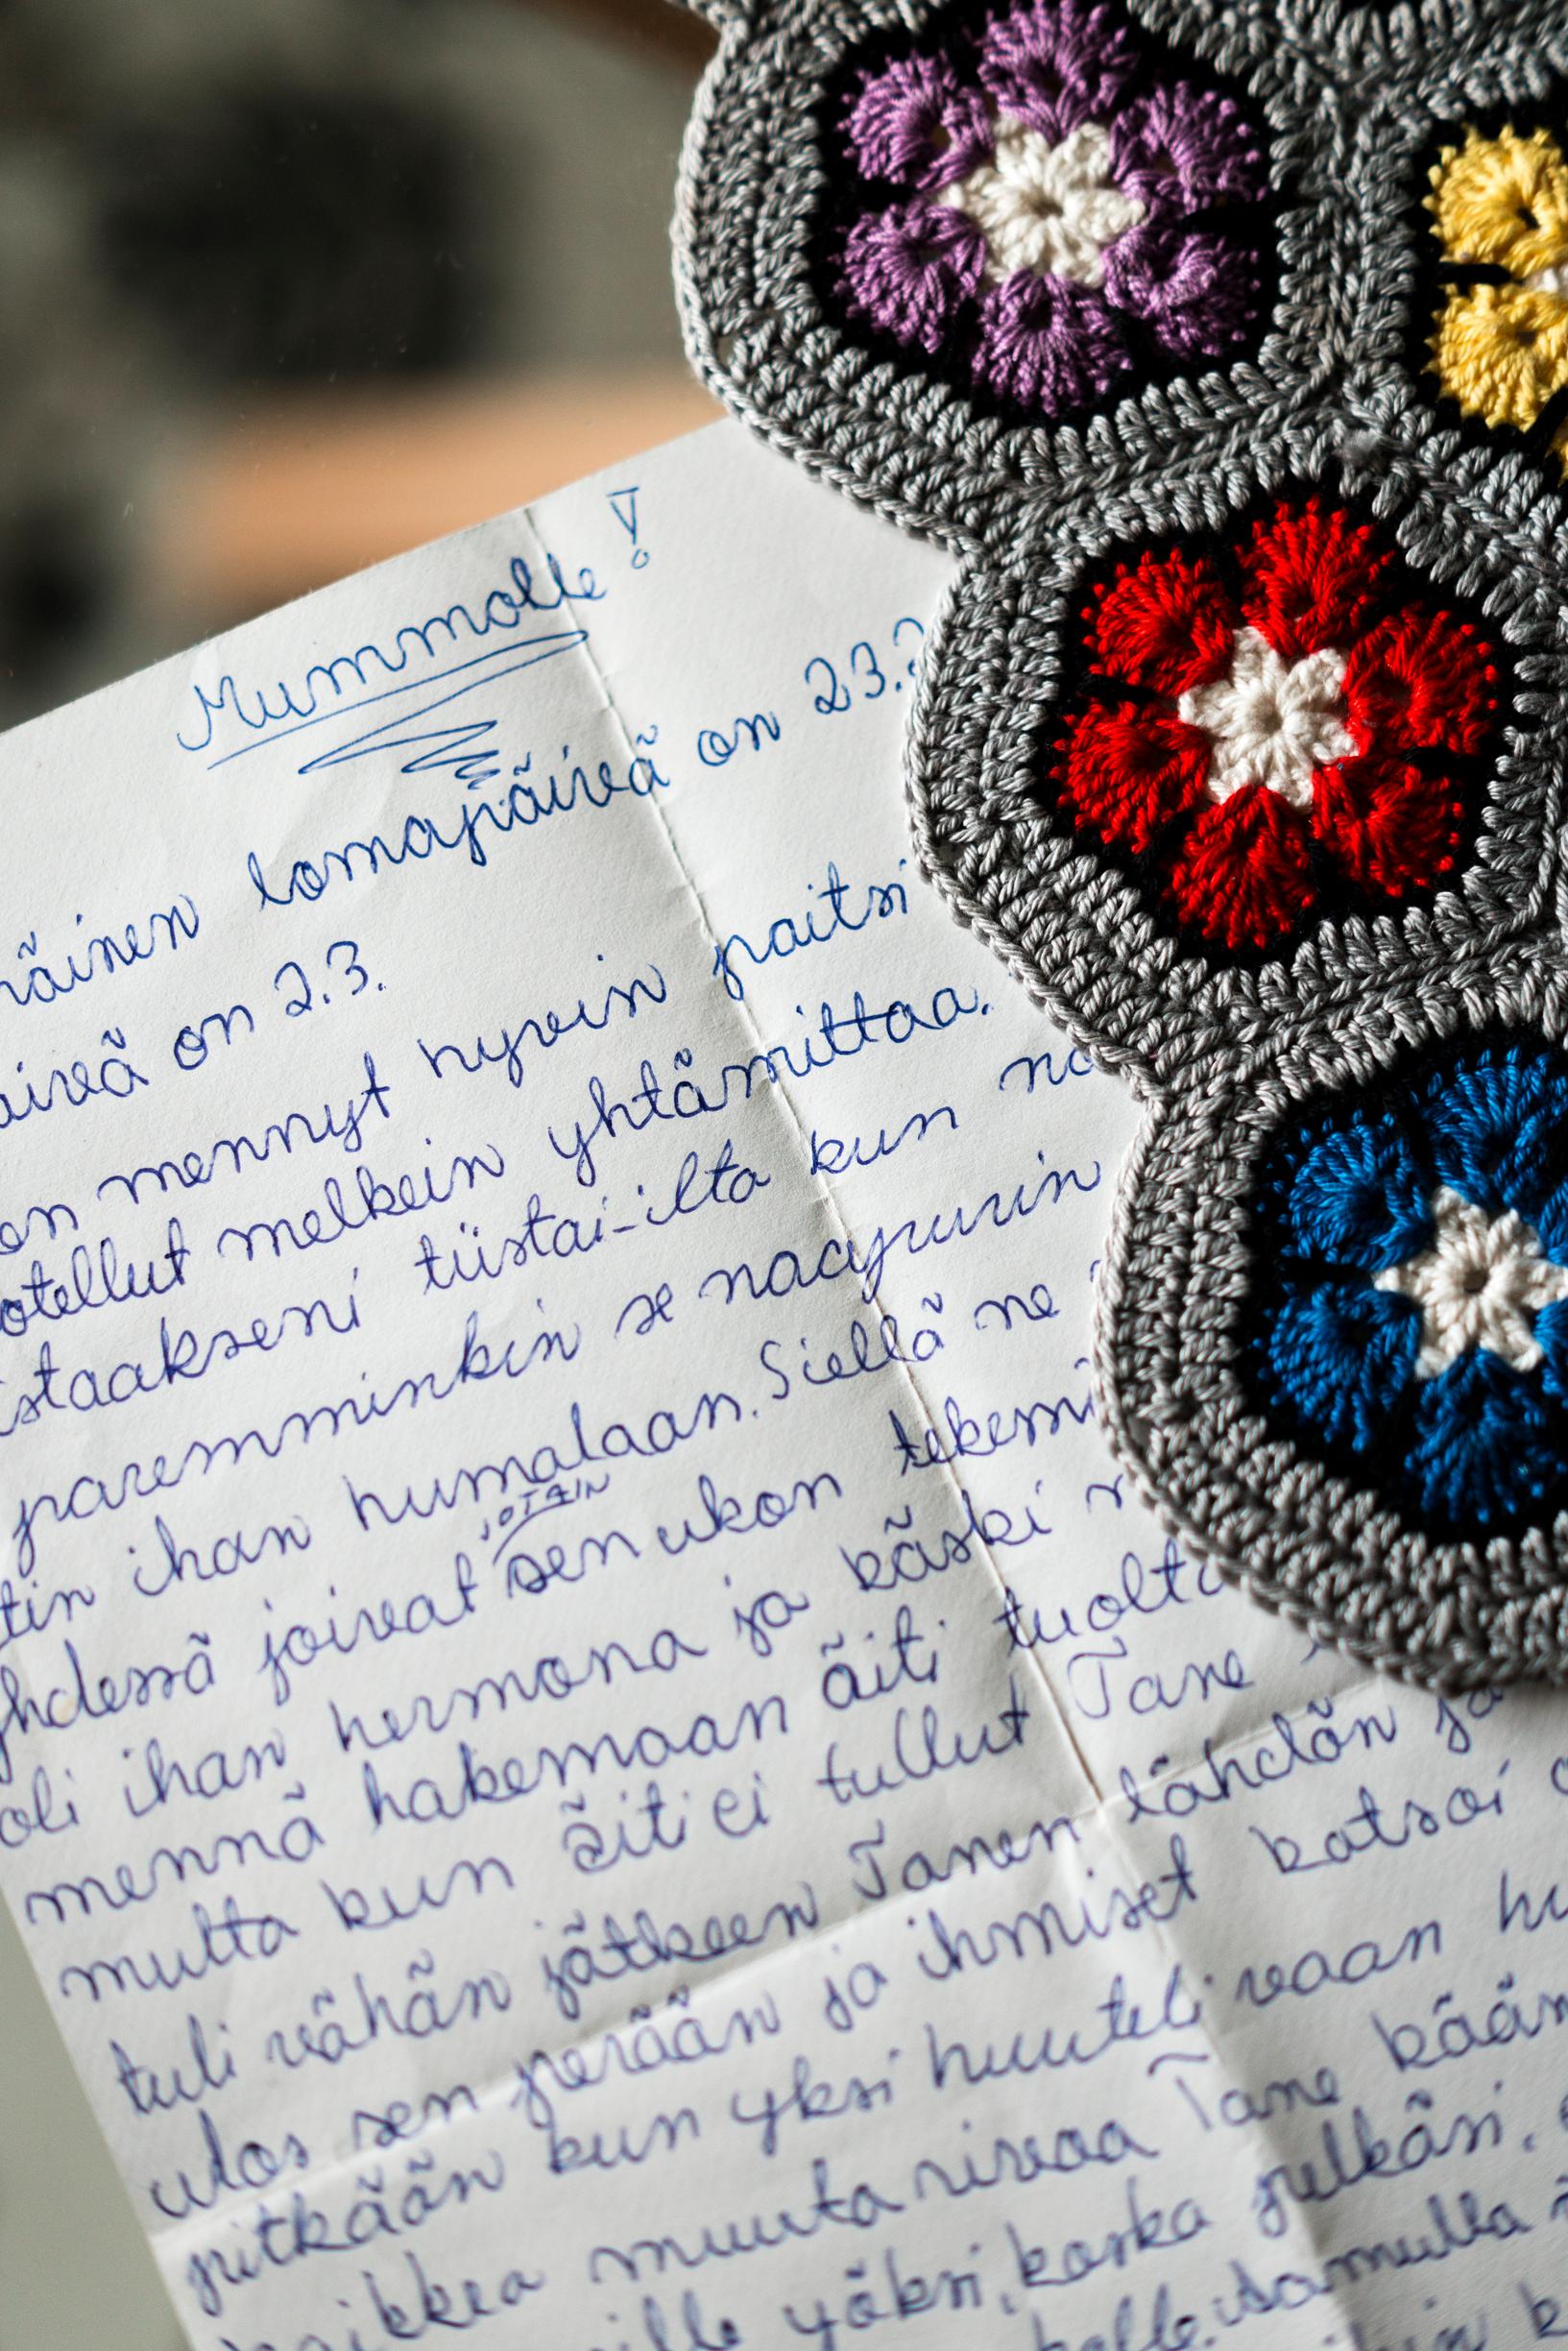 Mummolle!
näinen lomapäivä on 23.2
äivä on 2.3.
on mennyt hyvin paitsi
otellut melkein yhtämittaa.
istaakseni tiistai-ilta kun
paremminkin se naapurin
tin ihan humalaan. Siellä ne
JOTAIN
yhdessä joivat sen ukon tekemä
oli ihan hermona ja käski
mennä hakemaan äiti tuolta
mutta kun äiti ei tullut Tane
tuli vähän jätkeen Tanen lähdön ja
ulos sen perään ja ihmiset katsoi
pitkään kun yksi huuteli vaan hu
kaikkea muuta rivoa Tane kään
ille yöksi, koska pelkäsi.
mulla